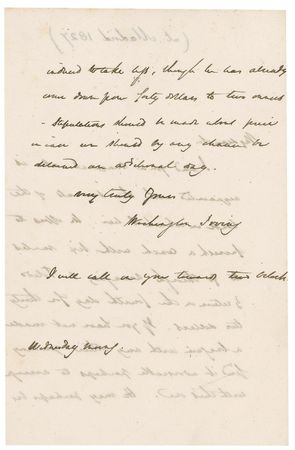 (at Madrid 1827)
induced to take less, though he has already
come down from forty dollars to two ounces
- Stipulations should be made about price
in case we should by any chance be
detained an additional day.
very truly Yours
Washington Irving
I will call on you toward two Oclock.
Wednesday morng.